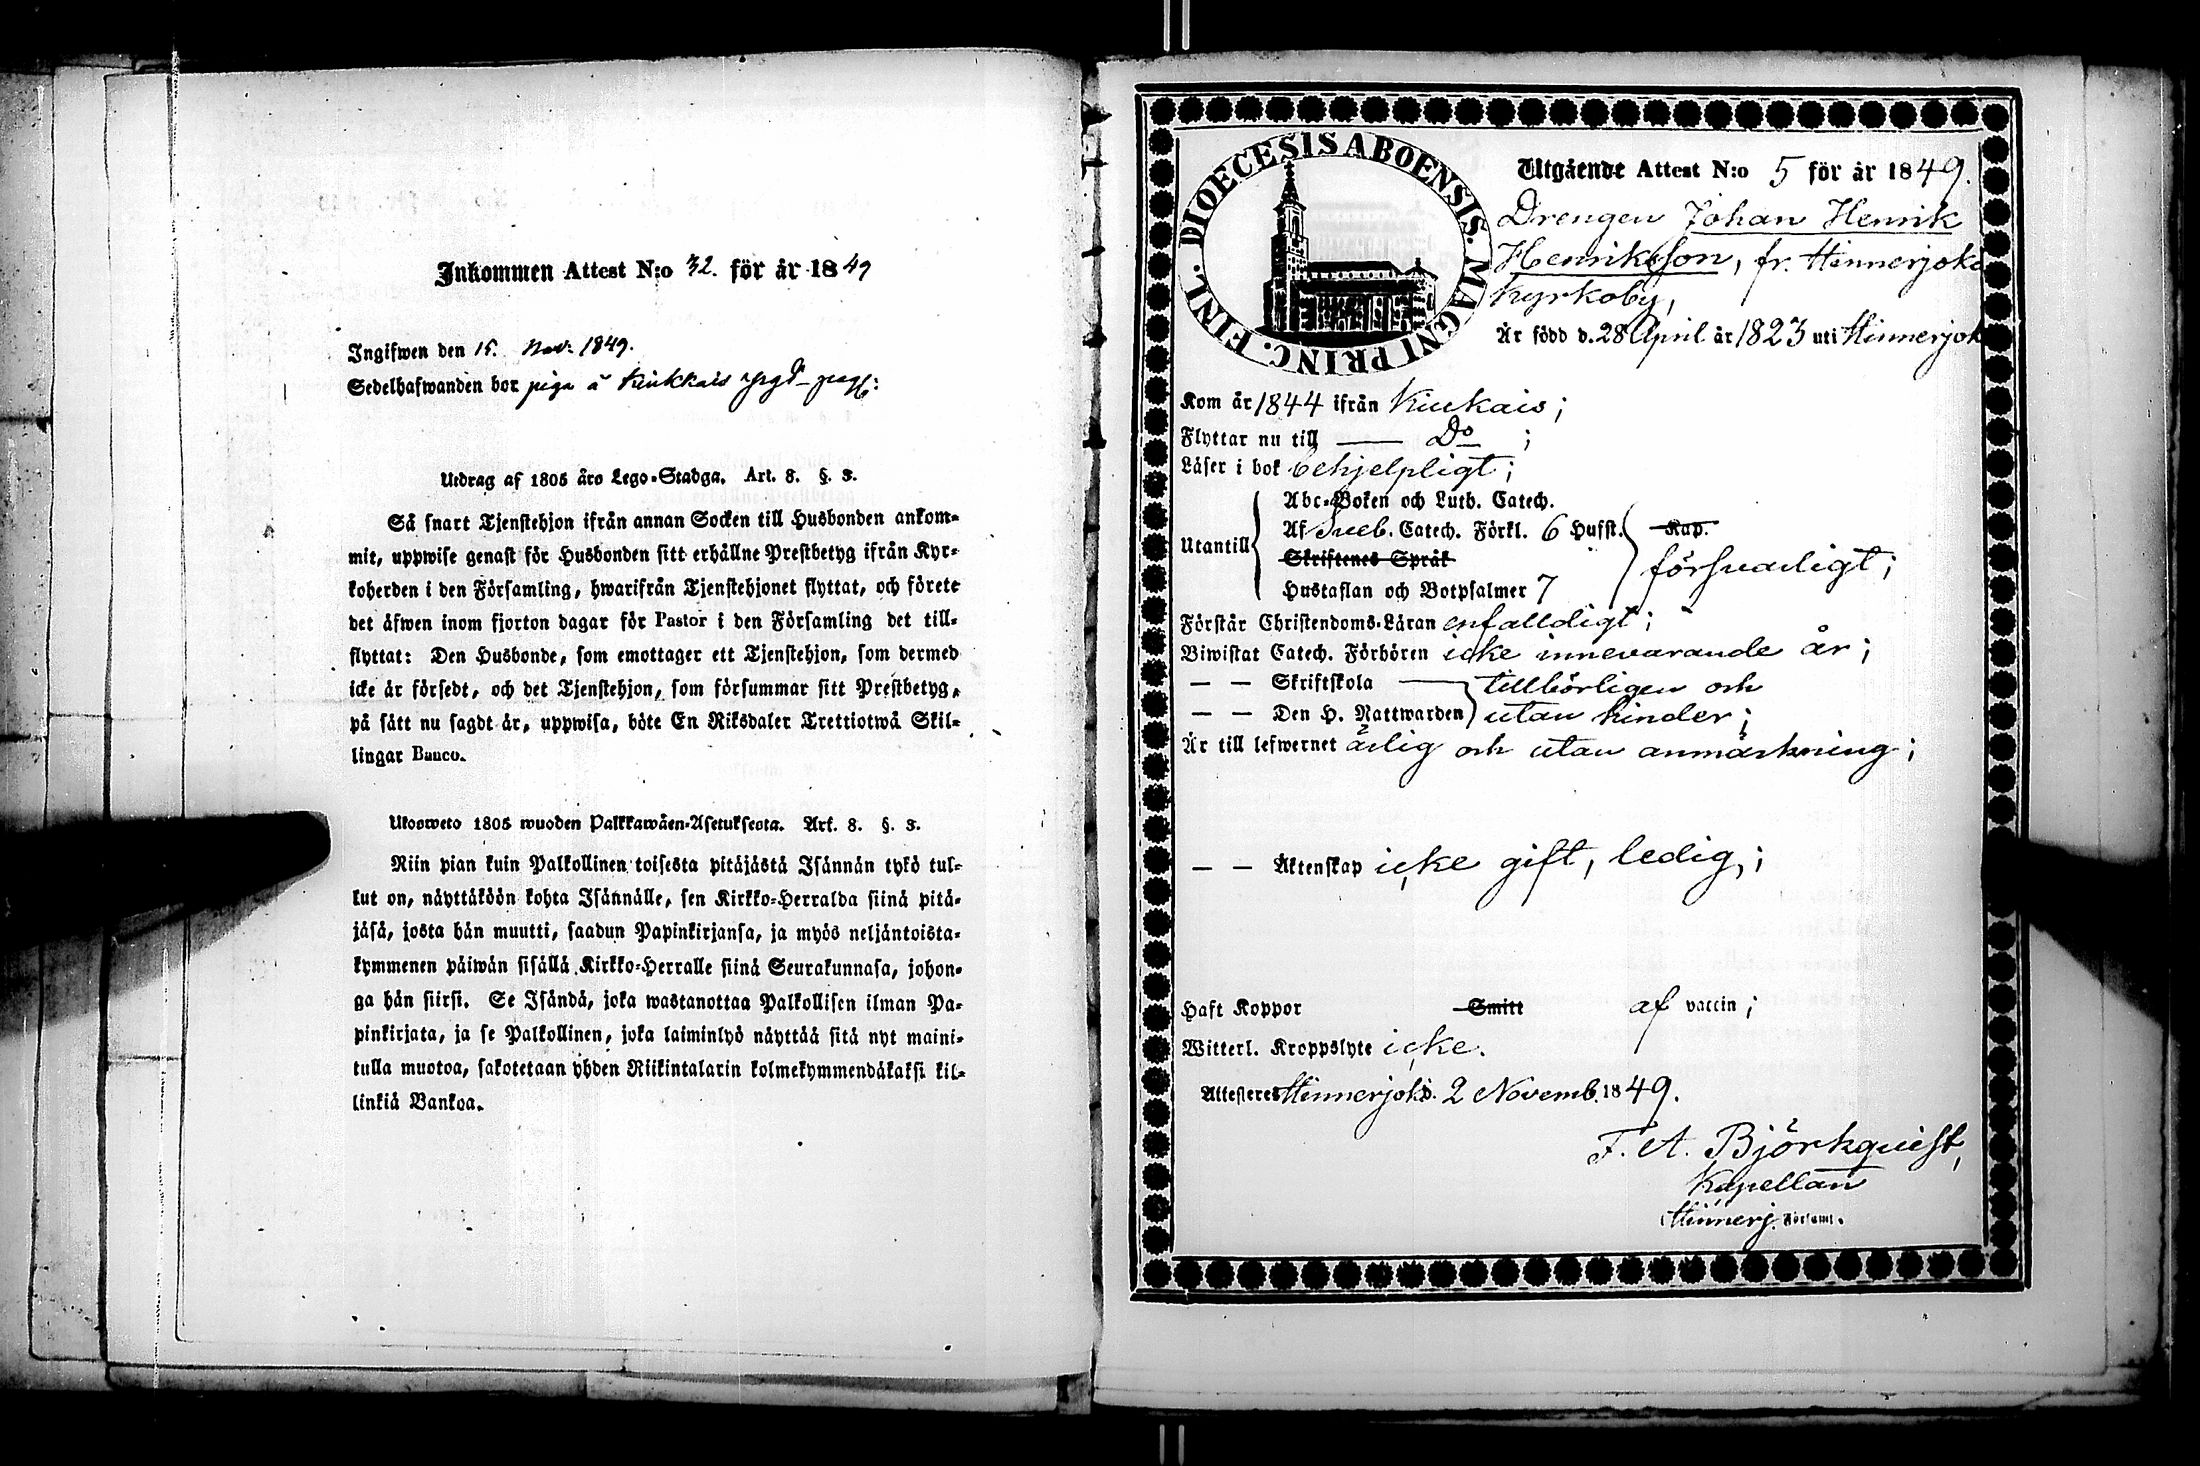 Inkommen Attest N:o 32. för år 1849
Ingifwen den 15. Nov: 1849.
Sedelhafwanden bor piga å Kiukkais
Utdrag af 1805 års Lego-Stadga. Art. 8. §. 3.
Så snart Tjenstehjon ifrån annan Socken till Husbonden ankom-
mit, uppwise genast för Husbonden sitt erhållne Prestbetyg ifrån Kyr-
koherden i den Församling, hwarifrån Tjenstehjonet flyttat, och förete
det äfwen inom fjorton dagar för Pastor i den Församling det till-
flyttat: Den Husbonde, som emottager ett Tjenstehjon, som dermed
icke är försedt, och det Tjenstehjon, som försummar sitt Prestbetyg,
på sätt nu sagdt är, uppwisa, böte En Riksdaler Trettiotwå Skil-
lingar Banco.
Ulosweto 1805 wuoden Palkkawäen-Asetuksesta. Art. 8. §. 3.
Niin pian kuin Palkollinen toisesta pitäjästä Isännän tykö tul-
lut on, näyttäköön kohta Isännälle, sen Kirkko-Herralda siinä pitä-
jäsä, josta hän muutti, saadun Papinkirjansa, ja myös neljäntoista-
kymmenen päiwän sisällä Kirkko-Herralle siinä Seurakunnasa, johon-
ga hän siirsi. Se Isändä, joka wastanottaa Palkollisen ilman Pa-
pinkirjata, ja se Palkollinen, joka laiminlyö näyttää sitä nyt maini-
tulla muotoa, sakotetaan yhden Riikintalarin kolmekymmendäkaksi kil-
linkiä Bankoa.
DIOECESIS ABOENSIS. MAGNI PRINC. FINL.
Utgående Attest N:o 5 för år 1849.
Drengen Johan Henrik
Henriksson, fr. Hinnerjoki
Kyrkoby,
Är född d. 28 April år 1823 uti Hinnerjok
Kom år 1844 ifrån Kiukais;
Flyttar nu till — Do ;
Läser i bok behjelpligt;
Abc-Boken och Luth. Catech.
Utantill Af Sveb. Catech. Förkl. 6 Hufst. Kap.
Skriftenes Språk försvarligt;
Hustaflan och Botpsalmer 7
Förstår Christendoms-Läran enfalldigt;
Biwistat Catech. Förhören icke innevarande år;
— — Skriftskola — tillbörligen och
— — Den H. Nattwarden utan hinder;
Är till lefwernet ärlig och utan anmärkning;
— — Äktenskap icke gift, ledig,;
Haft Koppor Smitt af vaccin;
Witterl. Kroppslyte icke.
Attesteres Hinnerjoki d. 2 Novemb. 1849.
F. A. Björkquist,
Kapellan
Hinnerj. Församl.